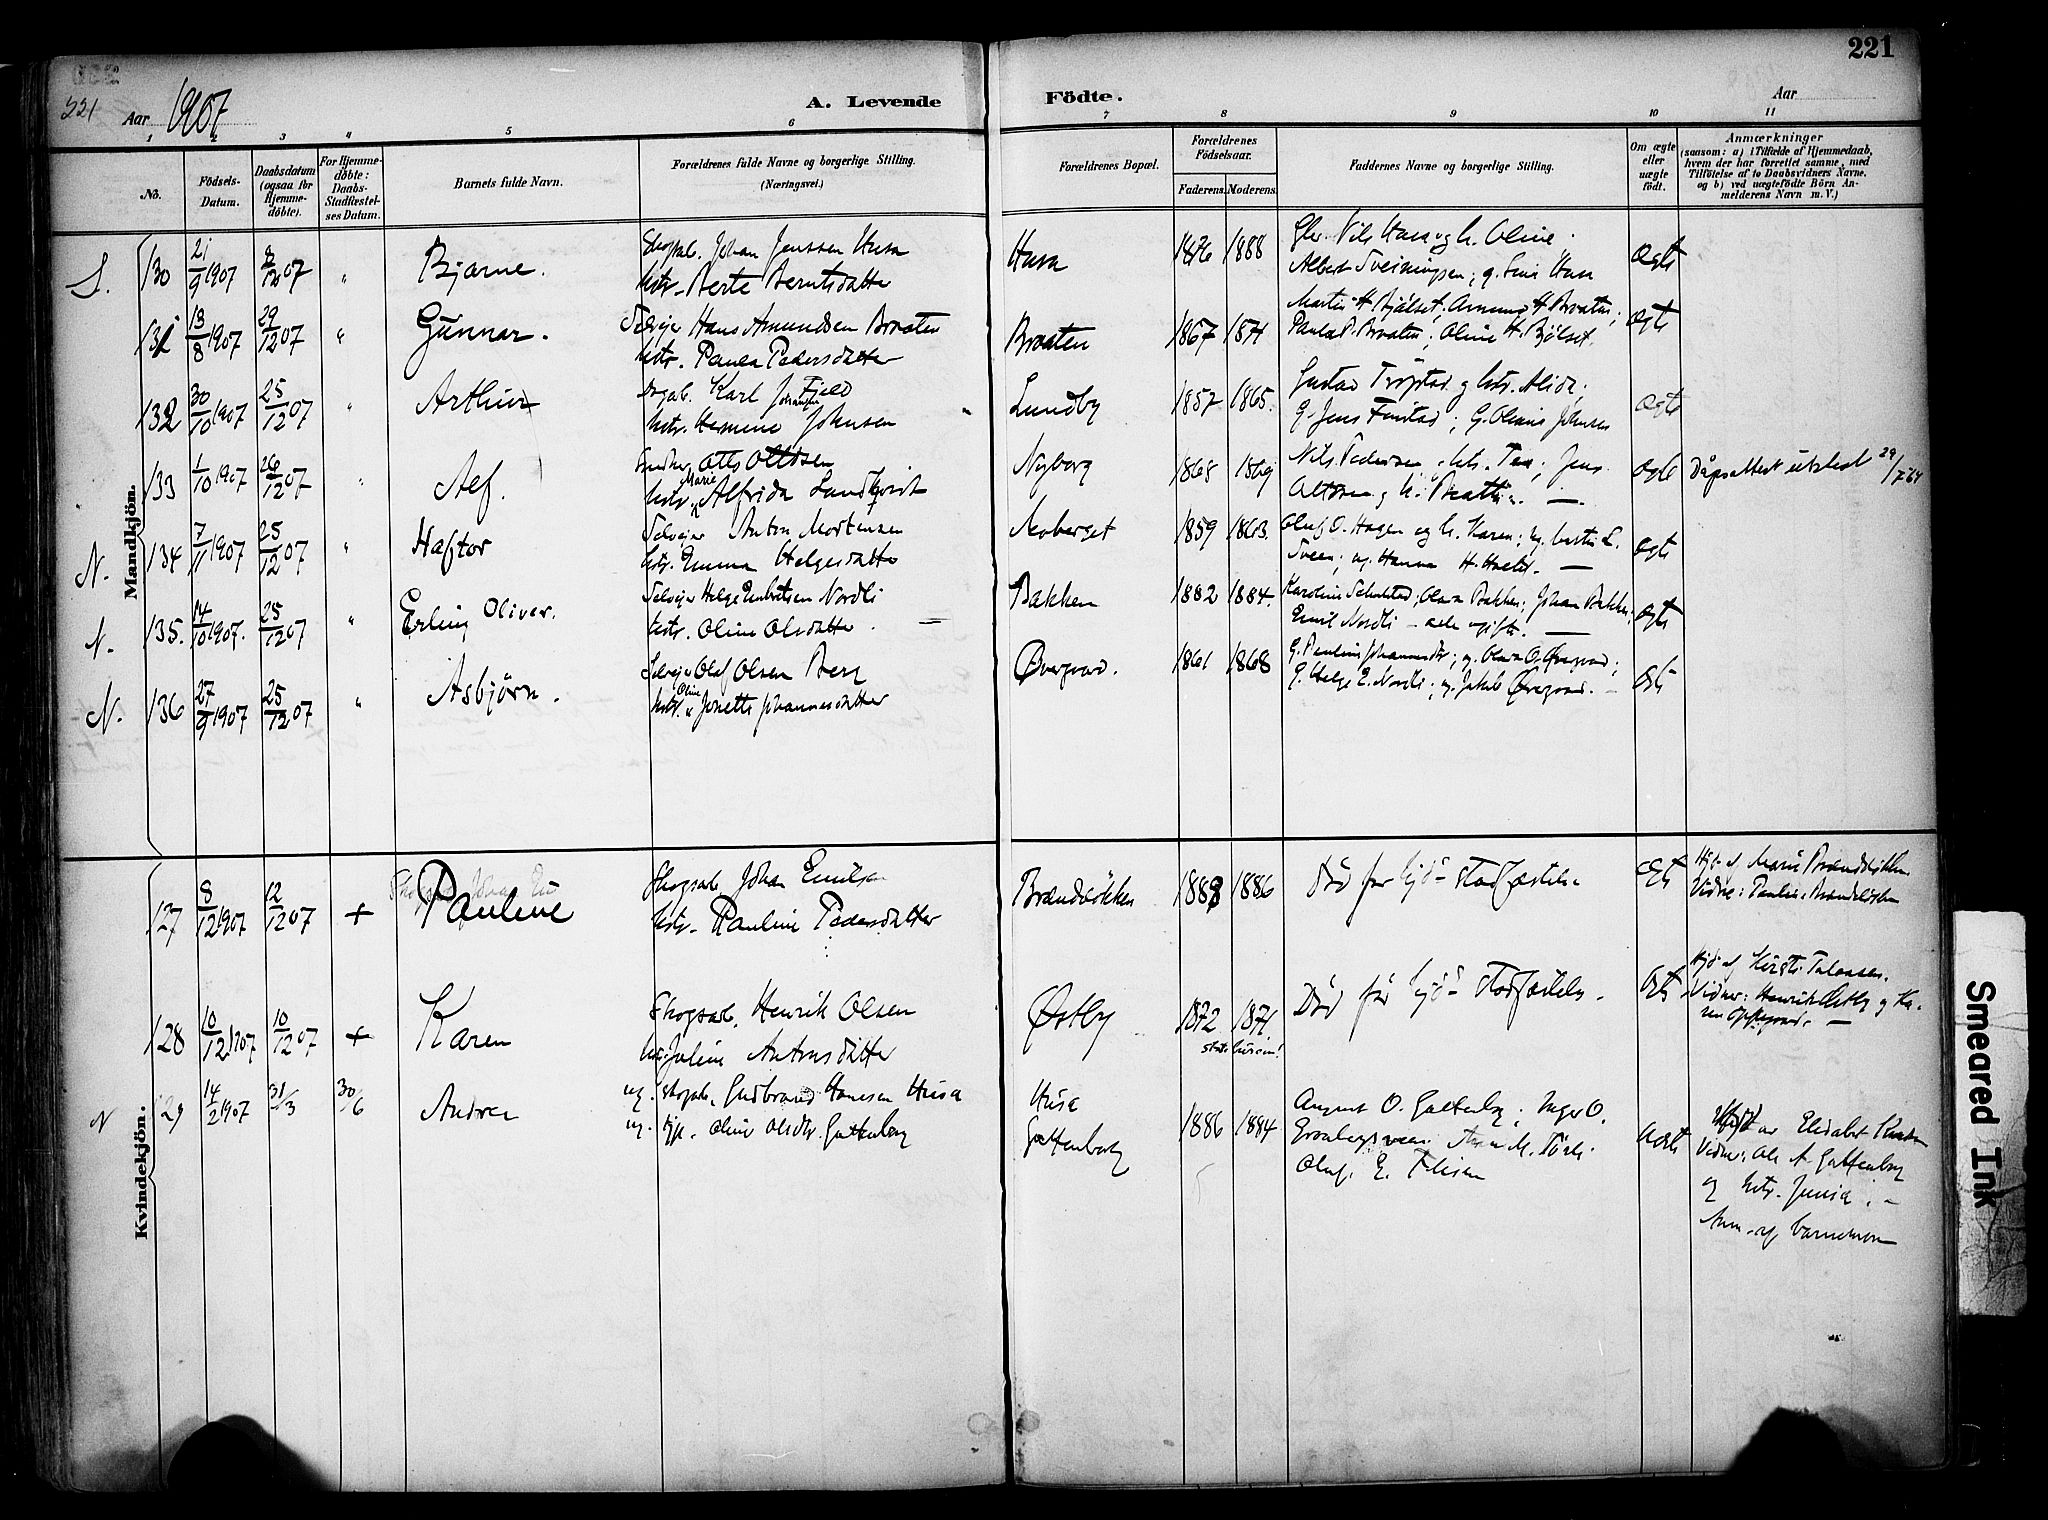 221
221
Aar 1907
A. Levende
Födte.
Aar
1 2 3 4 5 6 7 8 9 10 11
No.
Födsels-Datum.
Daabsdatum (ogsaa for Hjemme-döbte).
For Hjemme-döbte: Daabs-Stadfæstel-ses Datum.
Barnets fulde Navn.
Forældrenes fulde Navne og borgerlige Stilling. (Næringsvei.)
Forældrenes Bopæl.
Forældrenes Födselsaar.
Faderens. Moderens.
Faddernes Navne og borgerlige Stilling.
Om ægte eller uægte födt.
Anmærkninger
(saasom: a) i Tilfælde af Hjemmedaab, hvem der har forrettet samme, med Tilföielse af to Daabsvidners Navne, og b) ved uægtefödte Börn An-melderens Navn m. V.)
Mandkjön.
S. 130 21/9 1907 8/12 07 " Bjarne. Skogsarb. Johan Jenssen Husa
Hstr. Berte Berntsdatter
Husa 1876 1888 Nils Husa og h. Oline;
Albert Sveiningsen; Husa
Ægte
131 13/8 1907 29/12 07 " Gunnar. Selveier Hans Amundsen Braaten
Hstr. Paula Pedersdatter
Braaten 1867 1871 Martin H. Bjölset; H. Braaten;
Paula P. Braaten; Oline H. Bjölset.
Ægte
132 30/10 1907 25/12 07 " Arthur Karl Johansen Fjeld
Hstr. Hermine Johnsen
Lundby 1857 1865. Gustav Tröstad og hstr. Alida;
G. Jens Finstad; G. Olaus Johnsen
Ægte
133 1/10 1907 26/12 07 " Alf. Otto Olsen
Hstr. Marie Alfrida Lundkvist
Nyborg 1868 1869 Nils Pedersen, hstr. Tea; Jens
Ægte Dåpsattest utstedt 29/7 64
N. 134 7/11 1907 25/12 07 " Haftor Selveier Anton Mortensen
Hstr. Emma Helgesdatter
Moberget 1859 1863. Oluf O. Hagen og h. Karen;
Sveen; ug. Hanna H.
Ægte
N. 135. 14/10 1907. 25/12 07 " Erling Oliver. Selveier Helge Embretsen Nordli
Hstr. Oline Olsdatter.
Bakken 1882 1884. Karoline; Olava Bakken; Johan Bakken;
Emil Nordli – alle ugifte.
Ægte
N. 136 27/9 1907 25/12 07 " Asbjörn. Selveier Olaf Olsen Berg
Hstr. Oline Jonette Johannesdatter
Øvergaard. 1861 1868 G. Pauline Johannesdtr; ug. Olava O. Øvergaard;
G. Helge E. Nordli; ug. Jakob Øvergaard.
Ægte
Kvindekjön.
127 8/12 1907 12/12 07 + Pauline Skogsarb. Johan Emilsen
Hstr. Pauline Pedersdatter
Brændelökken 1888 1886 Död för hjd-stadfæstelse Ægte
Hjd. af Marie Brændelökken
Vidne: Pauline Brændelökken
128 10/12 1907 10/12 07 + Karen Skogsarb. Henrik Olsen
Juline Antonsdatter
Østby 1872 1871 Död för hjd-stadfæstelse. Ægte
Hjd. af Kirsti
Vidner: Henrik Østby og Ka-
ren
N 129 14/2 1907 31/3 30/6 Andrea ug. Skogsarb. Gudbrand Hansen Husa
ug. Oline Olsdtr. Gattenborg
Husa
Gattenborg 1886 1884 August O. Gattenborg; Inger O.
M.
Oluf E. Flisen
Uægte
Hjd. av Elisabet
Vidner: Ole A. Gattenborg
og hstr. Jensia. –
Anm. af barnemoren
Smeared Ink